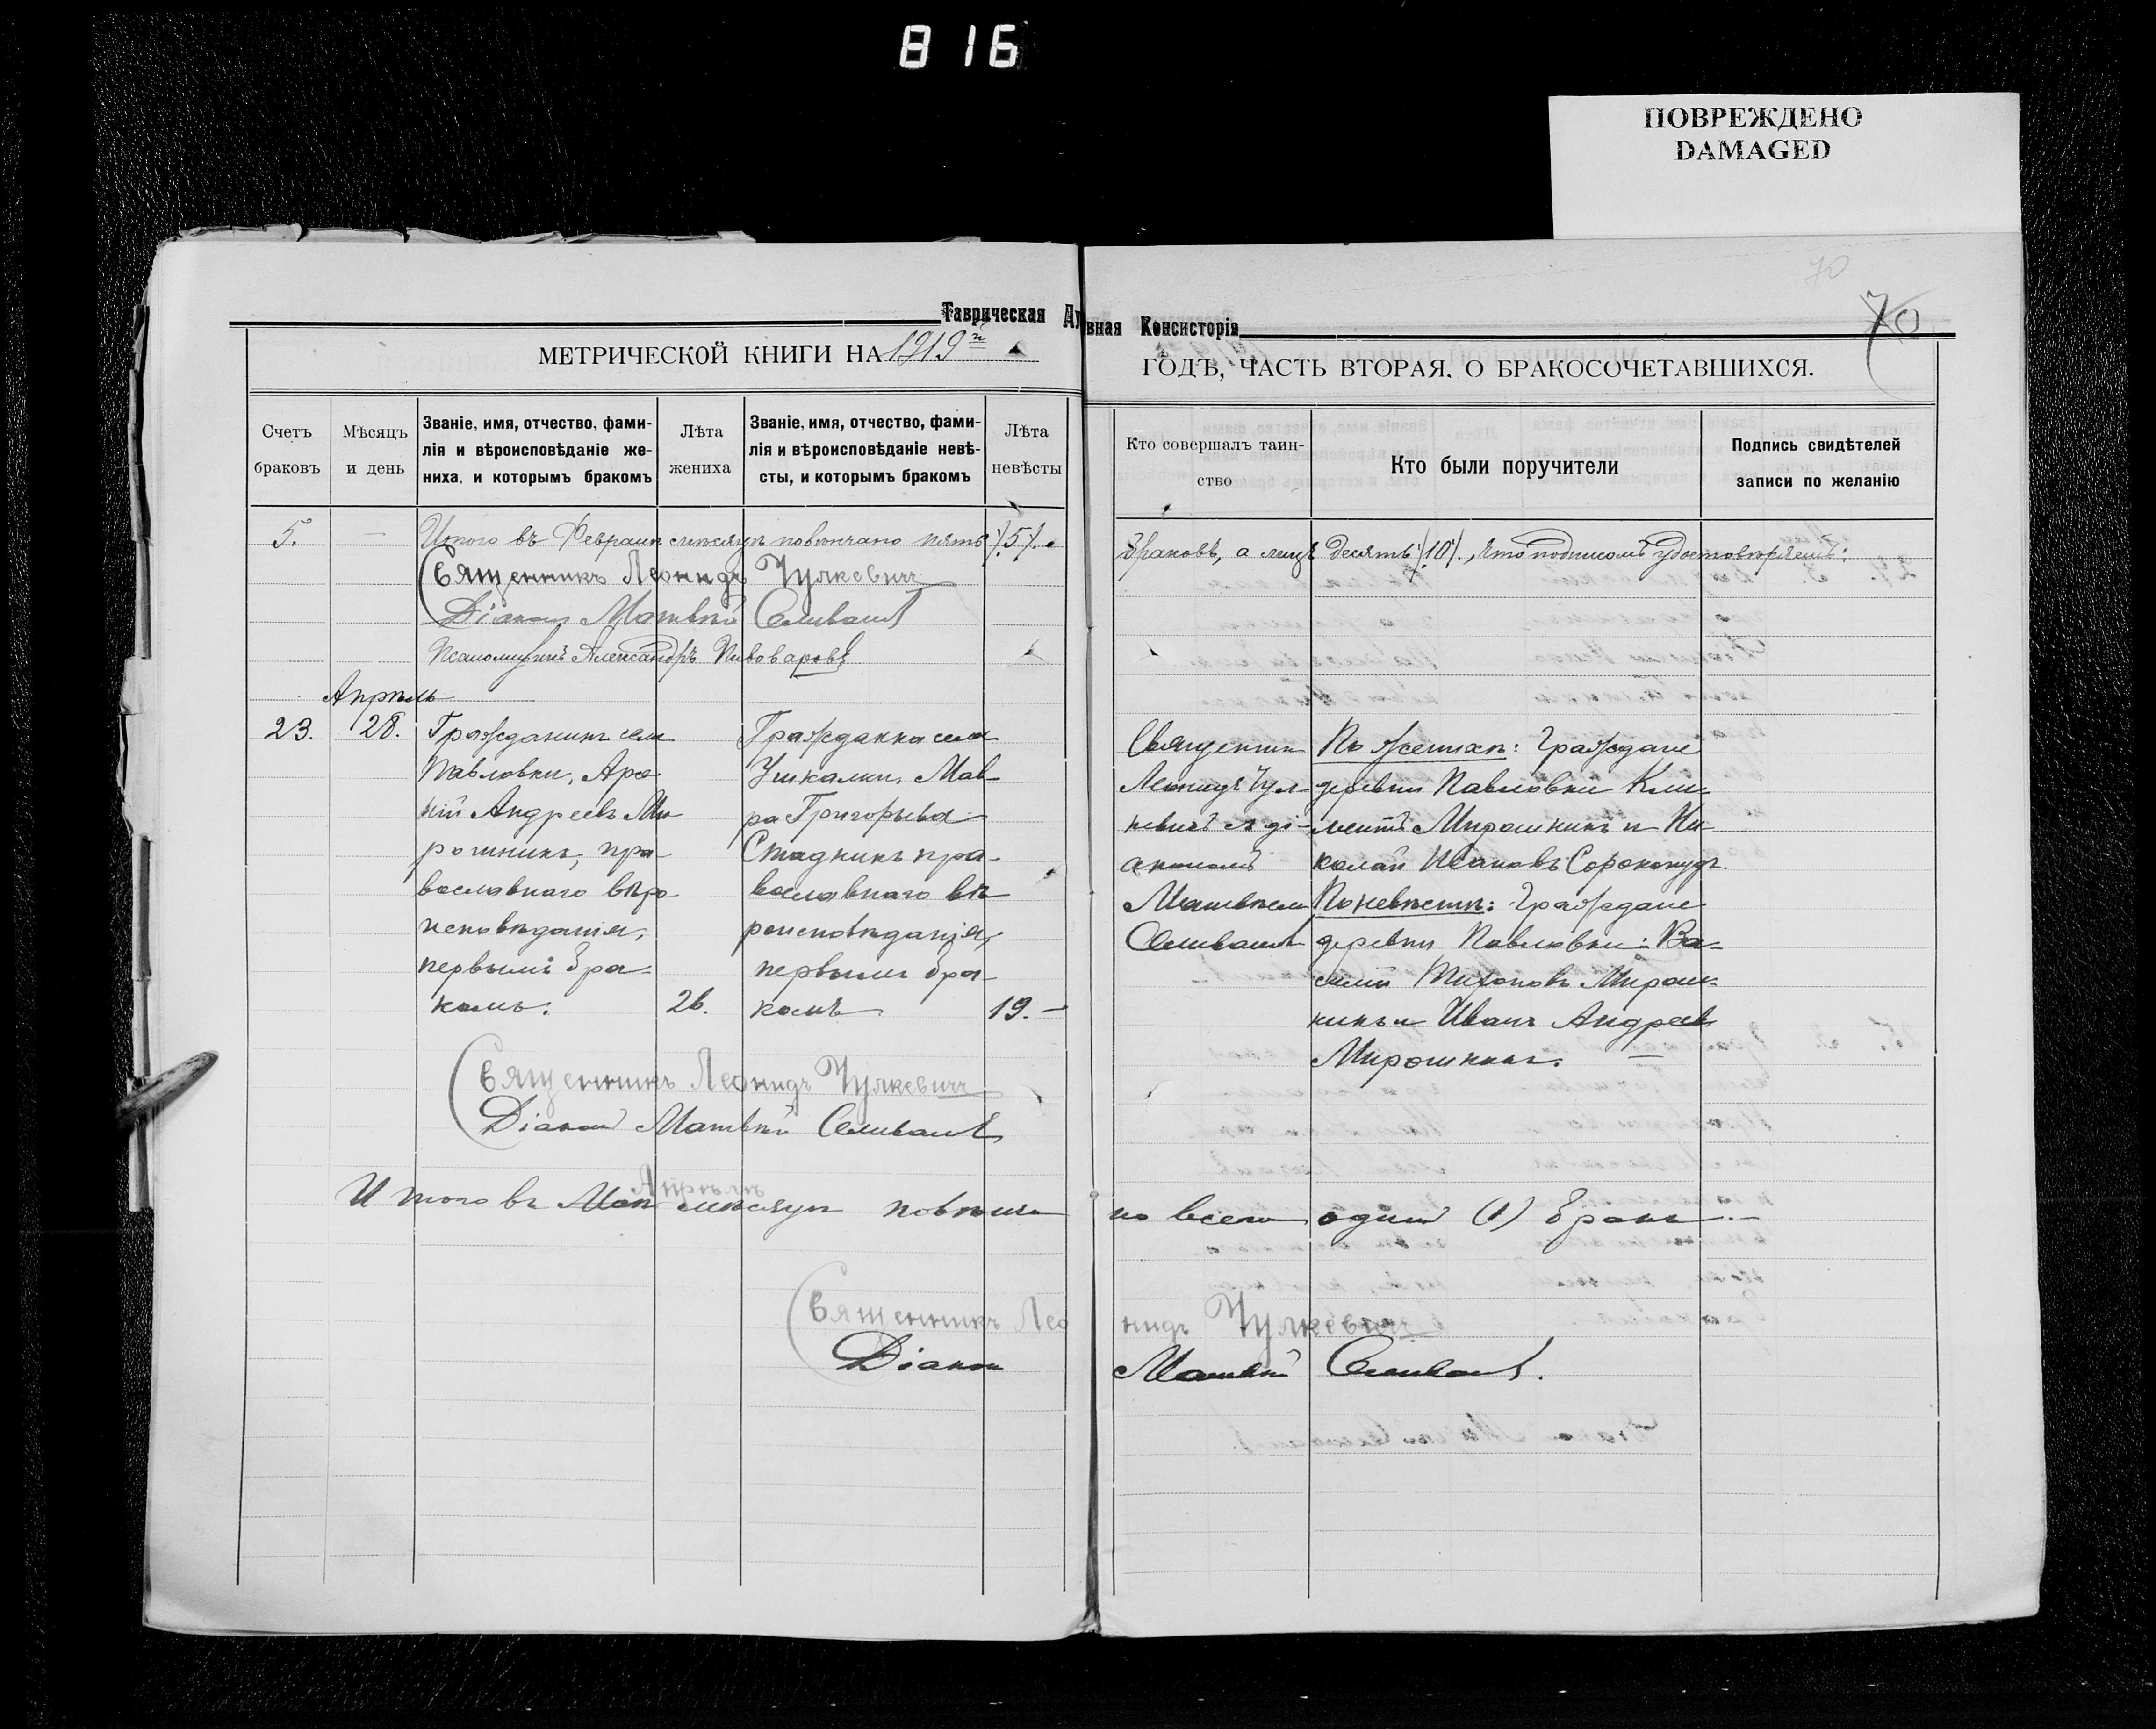 816
ПОВРЕЖДЕНО
DAMAGED
70
70
Таврическая Духовная Консисторія
МЕТРИЧЕСКОЙ КНИГИ НА 1919й ГОДЪ, ЧАСТЬ ВТОРАЯ. О БРАКОСОЧЕТАВШИХСЯ.
Счетъ браковъ
Мѣсяцъ и день
Званіе, имя, отчество, фами-
лія и вѣроисповѣданіе же-
ниха, и которымъ бракомъ
Лѣта жениха
Званіе, имя, отчество, фами-
лія и вѣроисповѣданіе невѣ-
сты, и которымъ бракомъ
Лѣта невѣсты
Кто совершалъ таин-
ство
Кто были поручители
Подпись свидѣтелей
записи по желанію
5. — Итого въ Февралѣ мѣсяцѣ повѣнчано пять /5/. браковъ, а лицъ десять /10/., что подписомъ удостовѣряемъ:
Священникъ Леонидъ Чулкевичъ
Діаконъ Матвѣй Селивановъ
Псаломщикъ Александръ Пивоваровъ
Апрѣль
23. 28.
Гражданинъ села
Павловки, Арсе
ній Андреевъ Ми
рошникъ, пра
вославнаго вѣро
исповѣданія,
первымъ бра-
комъ.
26.
Гражданка села
Ушкалки, Мав-
ра Григорьева
Стадникъ пра-
вославнаго вѣ
роисповѣданія,
первымъ бра-
комъ
19. —
Священникъ
Леонидъ Чул
кевичъ съ ді-
акономъ
Матвѣемъ
Селивановъ
По женихѣ: Граждане
деревни Павловки Кли-
ментъ Мирошникъ и Ни
колай Исаковъ Сорокопудъ.
По невѣстѣ: Граждане
деревни Павловки: Ва-
силій Тихоновъ Мирош-
никъ и Иванъ Андреевъ
Мирошникъ. —
Священникъ Леонидъ Чулкевичъ
Діаконъ Матвѣй Селивановъ
Апрѣлѣ
Итого въ Маѣ мѣсяцѣ повѣнча но всего одинъ (1) бракъ. —
Священникъ Леонидъ Чулкевичъ
Діаконъ Матвѣй Селивановъ.